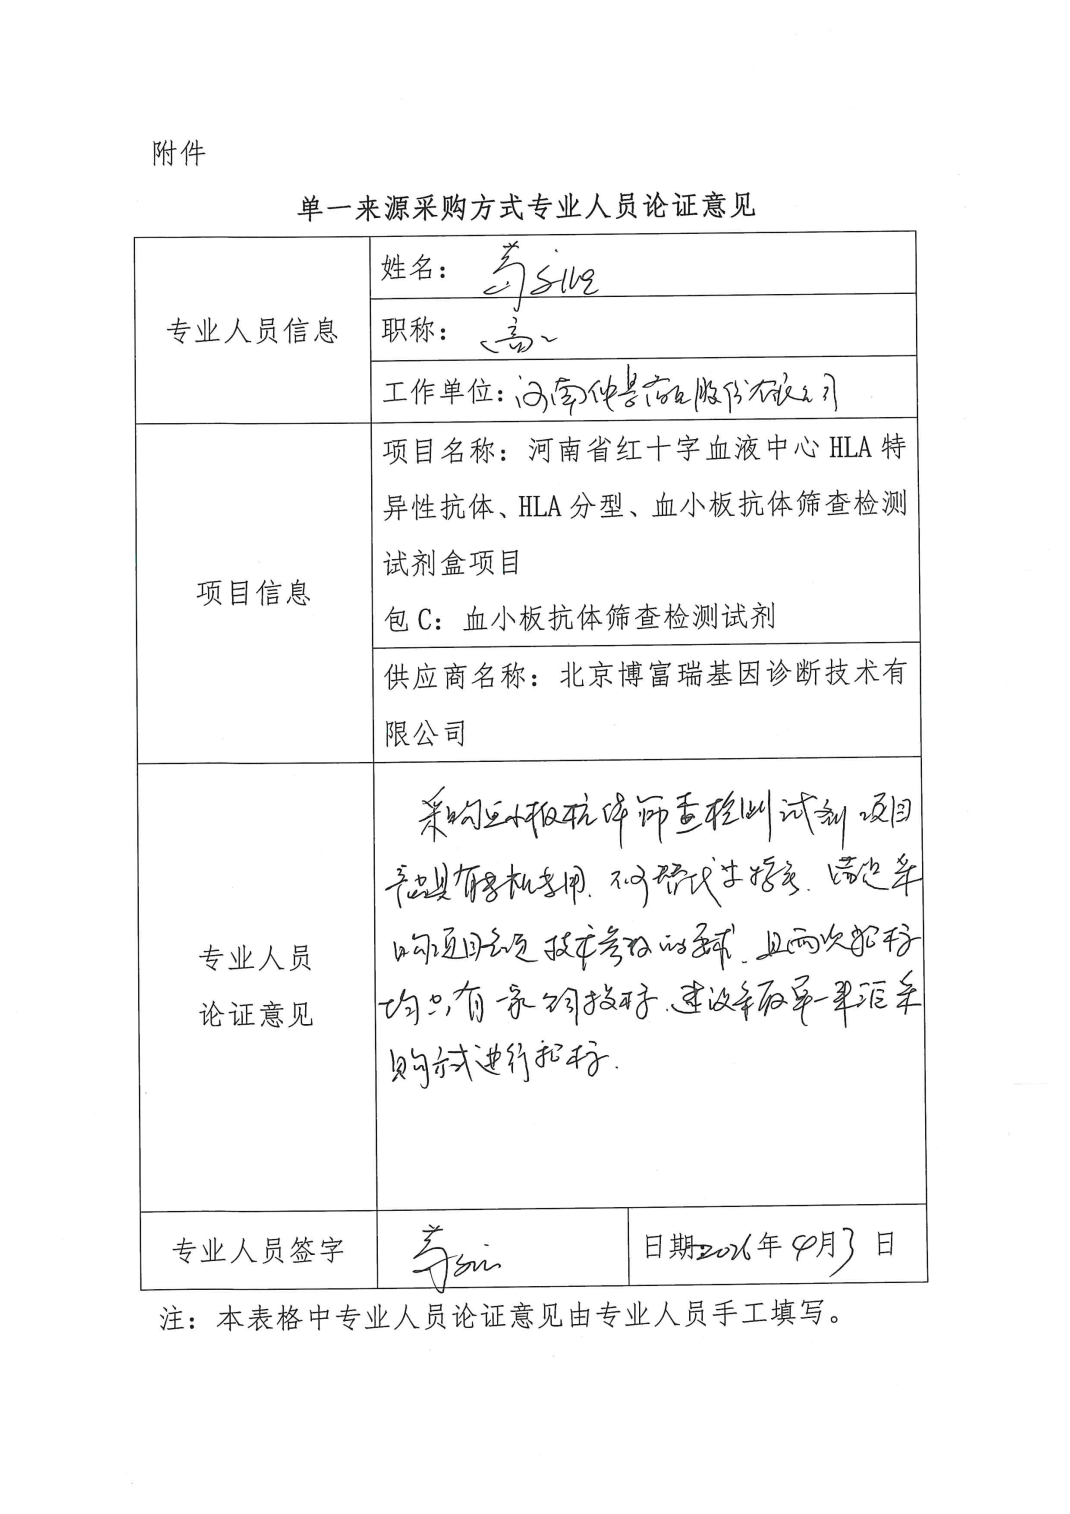 附件
单一来源采购方式专业人员论证意见
专业人员信息
姓名：
职称：高工
工作单位：河南仲景药业股份有限公司
项目信息
项目名称：河南省红十字血液中心 HLA 特
异性抗体、HLA 分型、血小板抗体筛查检测
试剂盒项目
包 C：血小板抗体筛查检测试剂
供应商名称：北京博富瑞基因诊断技术有
限公司
专业人员
论证意见
采购血小板抗体筛查检测试剂项目
产品具有专机专用、不可替代性特点、满足采
购项目技术参数的要求、且两次招标
均只有一家公司投标、建议采取单一来源采
购方式进行招标.
专业人员签字
日期：2026年4月3日
注：本表格中专业人员论证意见由专业人员手工填写。